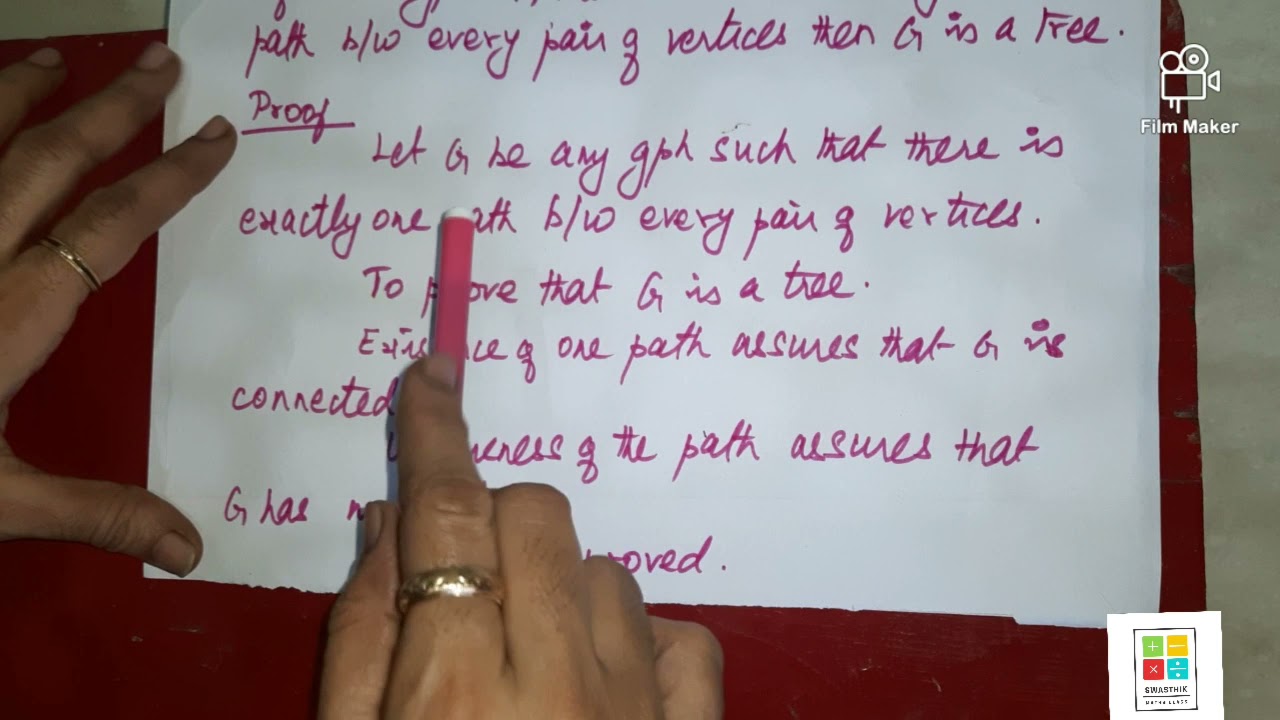 path b/w every pair of vertices then G is a Tree.
Proof
Let G be any gph such that there is
exactly one path b/w every pair of vertices.
To prove that G is a tree.
of one path assures that G is
connected
of the path assures that
G has
Film Maker
SWASTHIK
MATHS CLASS